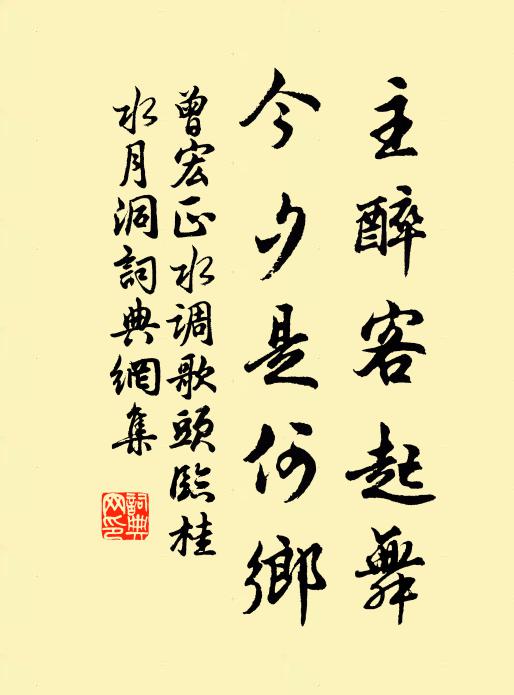 主醉客起舞
今夕是何鄉
曾宏正水调歌頭臨桂
水月洞詞典網集
詞典网印